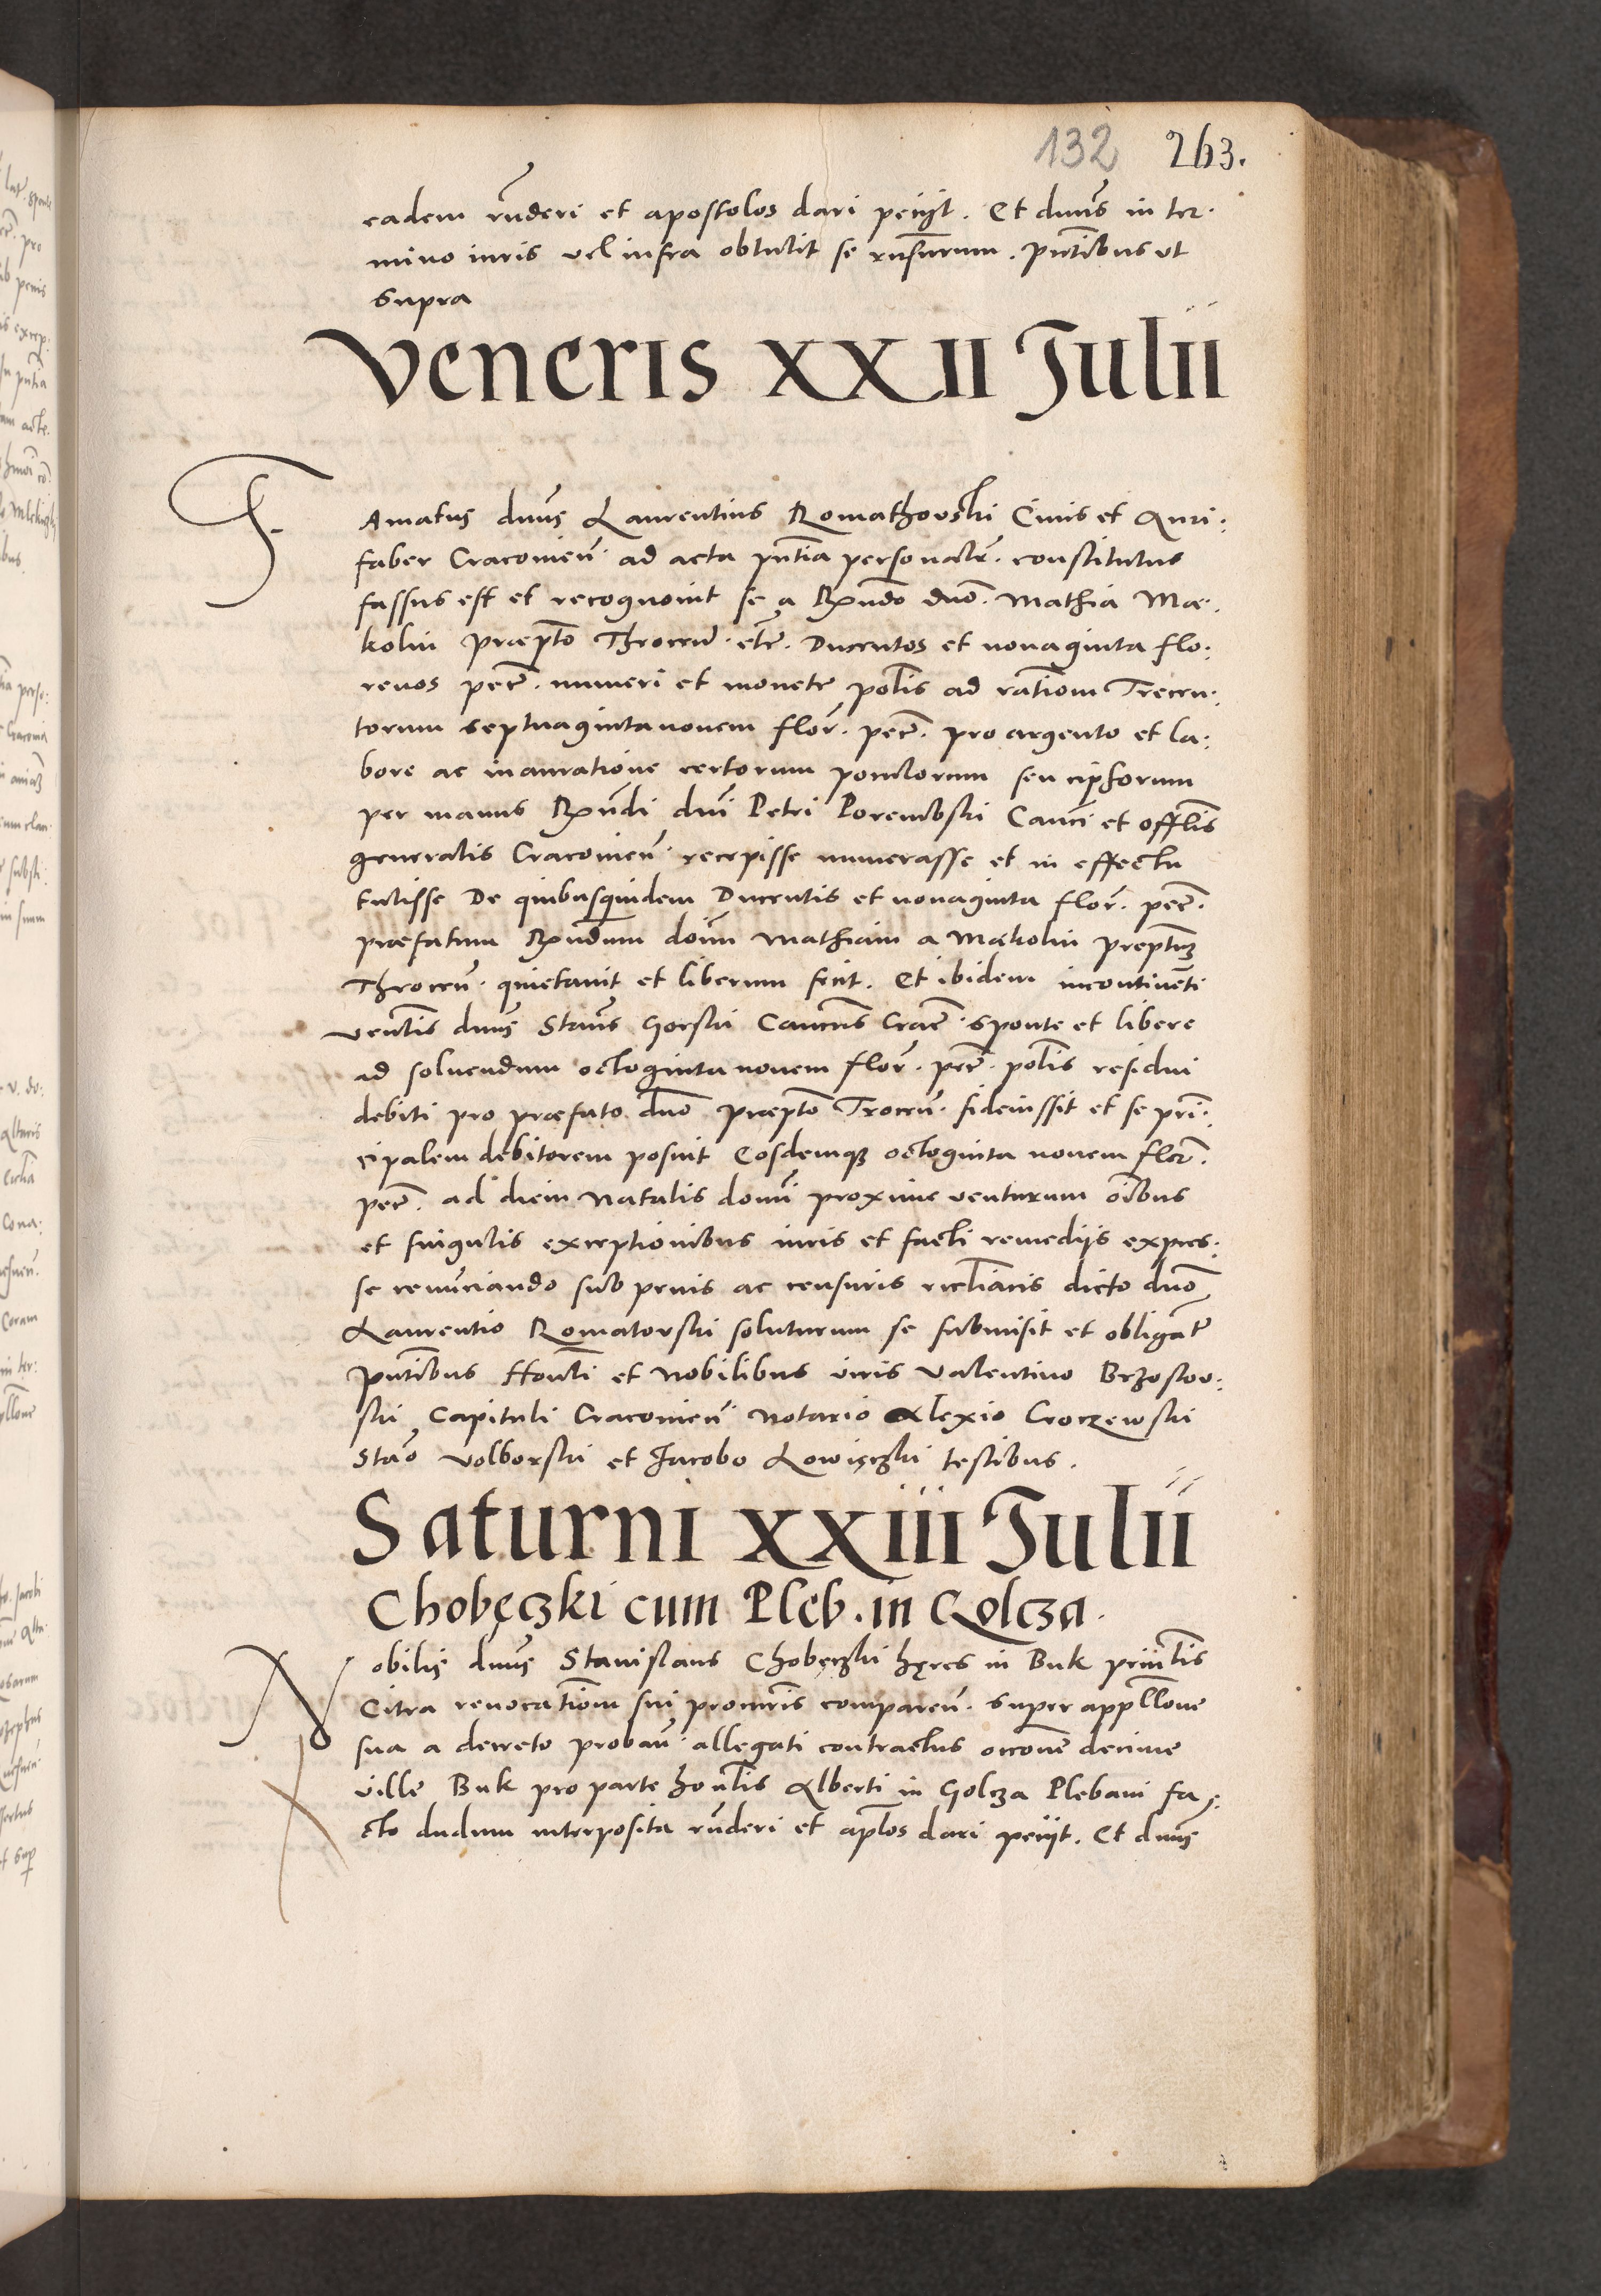 132 263.
eadem rn̄deri et apostolos dari petijt. Et dnūs in ter.
mino iuris vel infra obtulit se rn̄surum. Pn̄tibus ut
supra
Veneris XXII Julii
Famatus dnūs Laurentius Romathovski Civis et Auri:
faber Cracovien̄. ad acta pn̄tia personalr̄. constitutus
fassus est et recognovit se a Rn̄do dno. Mathia Mæ.
kolin præpt̄o Throcen̄. etc̄. Ducentos et nonaginta flo:
renos pec̄. numeri et monete pol̄is ad rat̄iom Trecen:
torum septuagintanovem flor̄. pec̄. pro argento et la:
bore ac inauratione certorum poculorum seu cipforum
per manus Rn̄di dnī Petri Porembski Canc̄i et offl̄is
generalis Cracovien̄. recepisse numerasse et in effectu
tulisse De quibusquidem Ducentis et nonaginta flor̄. pec̄.
præfatum Rn̄dum don̄m Mathiam a Mækolin prept̄um
Throcen̄. quietavit et liberum fecit. Et ibidem incontinen̄ti
Venl̄is dnūs Stan̄s Gorski Canc̄us Crac̄. sponte et libere
ad solvendum octogintanovem flor̄. pec̄. pol̄is residui
debiti pro præfato dno præpt̄o Trocen̄. fideiussit et se prī:
cipalem debitorem posuit Eosdemque octoginta novem flor̄.
pec̄. ad diem Natalis domī proxime venturum oībus
et singulis exceptionibus iuris et facti remedijs expres:
se renūciando sub penis ac censuris eccl̄iacis dicto dnō
Laurentio Romatovski soluturum se submisit et obligat̄
Pn̄tibus Honl̄i et Nobilibus viris Valentino Brzostov:
ski Capituli Cracovien̄ Notario Alexio Croczewski
Stāo Volborski et Jacobo Lowięczki testibus.
Saturni XXIII Julii
Chobęczki cum Pleb. in Golcza.
Nobilis dnūs Stanislaus Chobęczki hęres in Buk prīnl̄is
Citra revocat̄iom sui procur̄is comparen̄. super appll̄one
sua a decreto proban̄. allegati contractus occōne decime
ville Buk pro parte honl̄is Alberti in Golcza Plebani fa:
cto dudum interposita rn̄deri et apl̄os dari petijt. Et dnūs